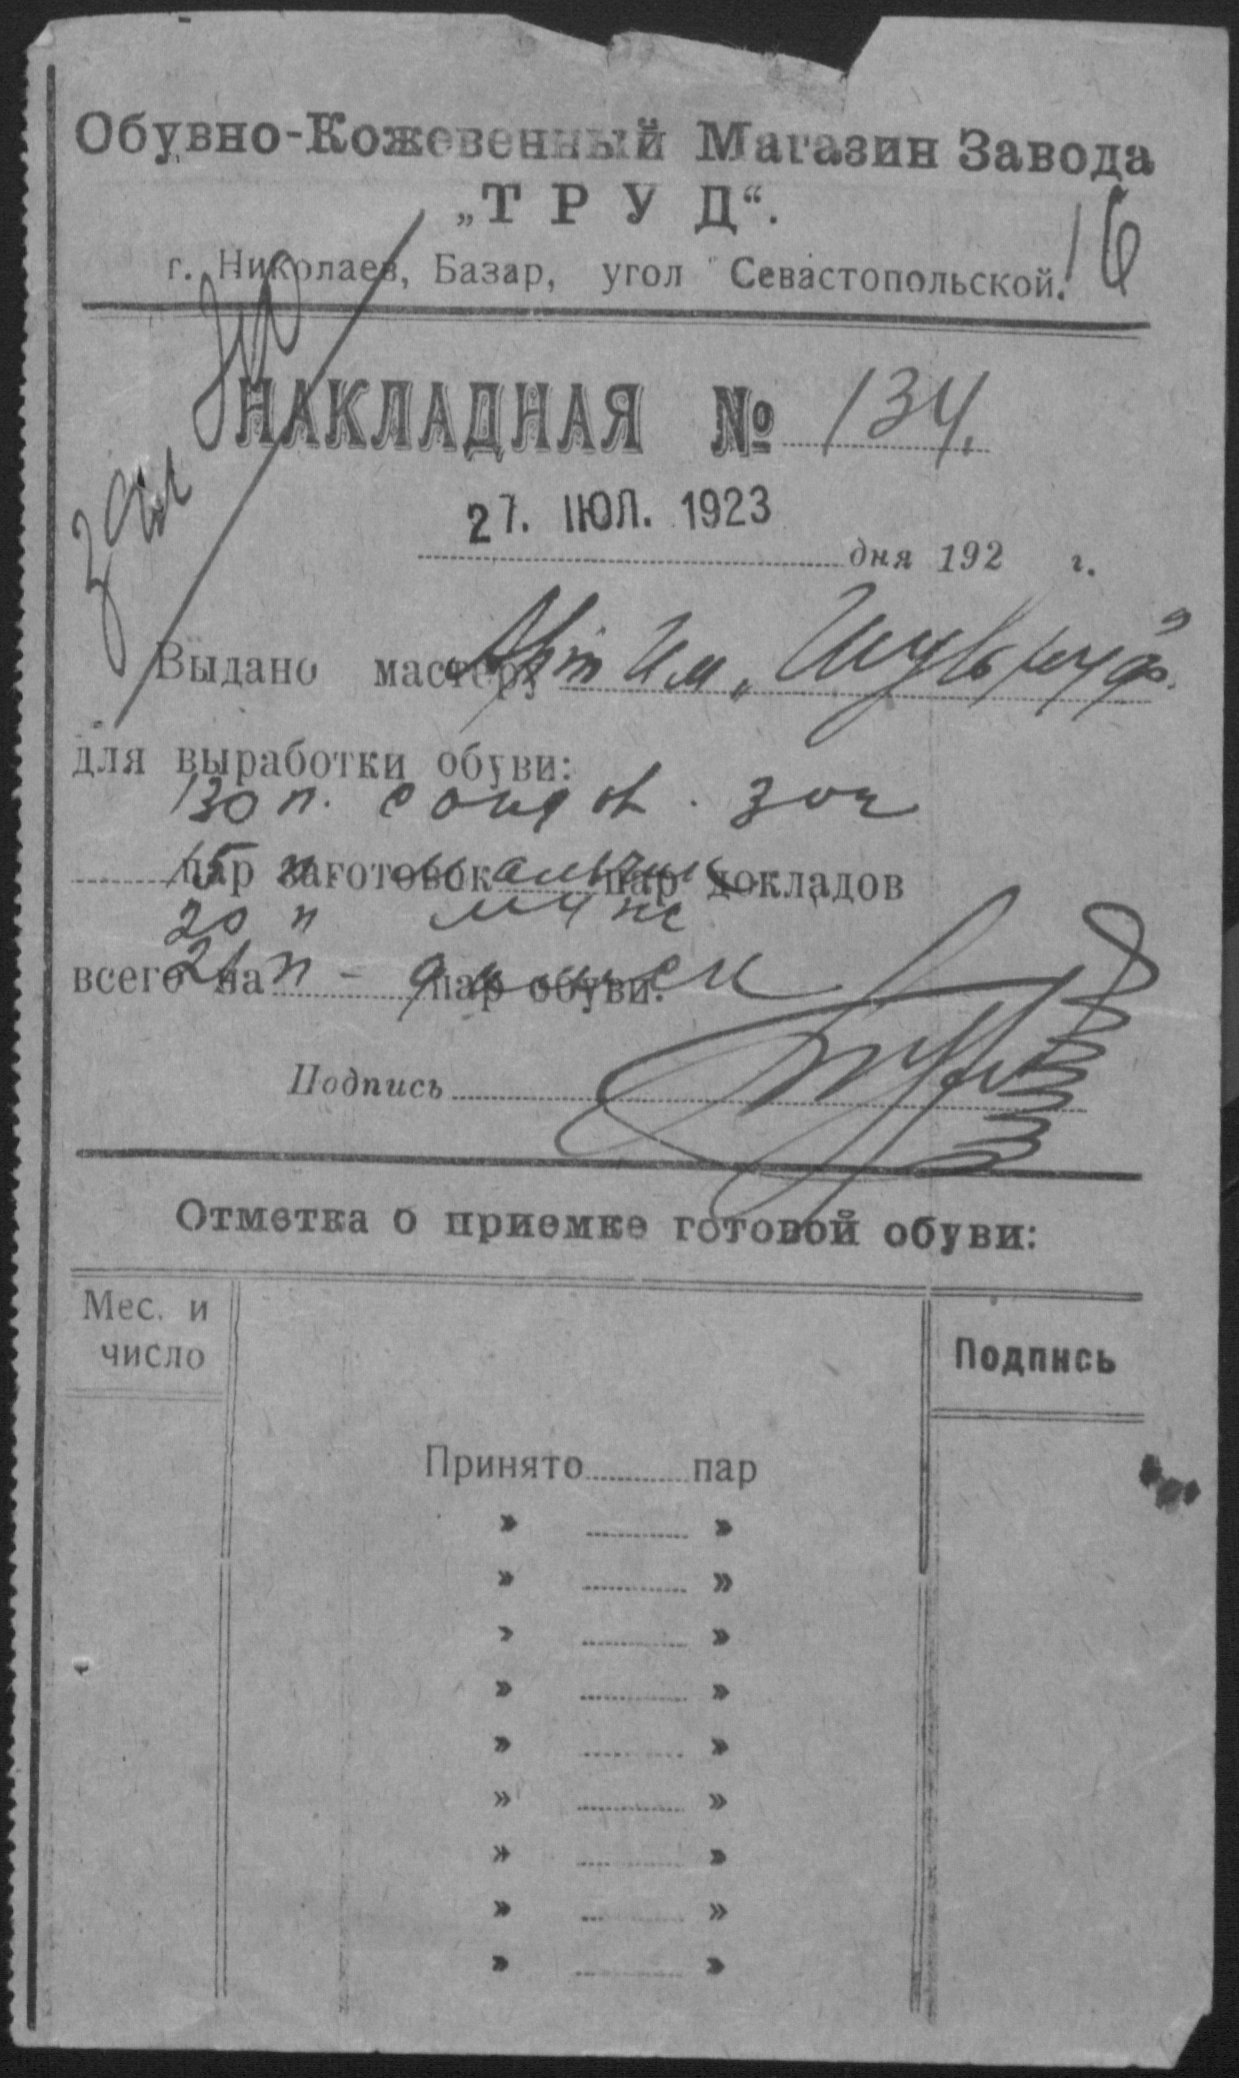 Обувно-Кожевенный Магазин Завода
„ТРУД“.
16
г. Николаев, Базар, угол Севастопольской.
НАКЛАДНАЯ № 134.
27. ІЮЛ. 1923
дня 192 г.
Выдано мастеру Арт Им „
для выработки обуви:
130 п. санд
пар заготовок пар докладов
15 п.
20 п муж
всего на пар обуви.
21 п -
Подпись
Отметка о приемке готовой обуви:
Мес. и
число
Подпись
Принято пар
» »
» »
» »
» »
» »
» »
» »
» »
» »